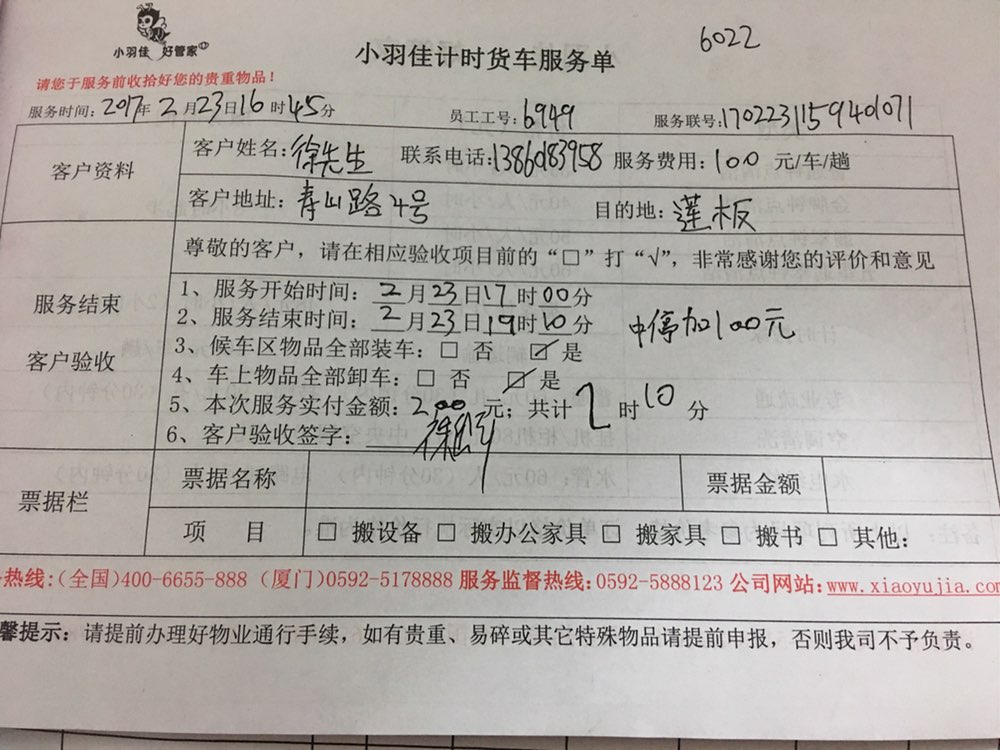 小羽佳 好管家
小羽佳计时货车服务单
6022
请您于服务前收拾好您的贵重物品！
服务时间：2017年2月23日16时45分 员工工号：6949 服务联号：1702231159401071
客户资料
客户姓名：徐先生 联系电话：13860183958 服务费用：100 元/车/趟
客户地址：青山路4号 目的地：莲板
服务结束
客户验收
尊敬的客户，请在相应验收项目前的“□”打“√”，非常感谢您的评价和意见
1、服务开始时间：2月23日17时00分
2、服务结束时间：2月23日19时10分 中停加100元
3、候车区物品全部装车：□ 否 ☑ 是
4、车上物品全部卸车：□ 否 ☑ 是
5、本次服务实付金额：200元；共计2时10分
6、客户验收签字：
票据栏
票据名称 票据金额
项 目 □ 搬设备 □ 搬办公家具 □ 搬家具 □ 搬书 □ 其他：
热线：(全国)400-6655-888 (厦门)0592-5178888 服务监督热线：0592-5888123 公司网站：www.xiaoyujia.com
馨提示：请提前办理好物业通行手续，如有贵重、易碎或其它特殊物品请提前申报，否则我司不予负责。